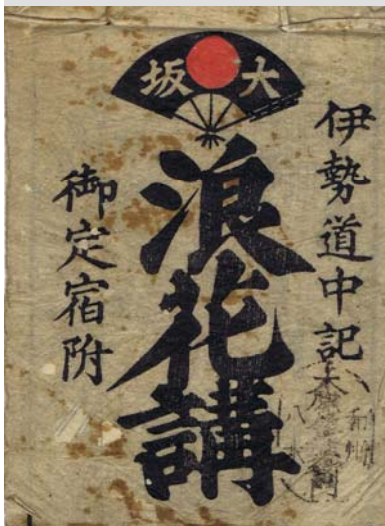 大坂
伊勢道中記
浪花講
御定宿附